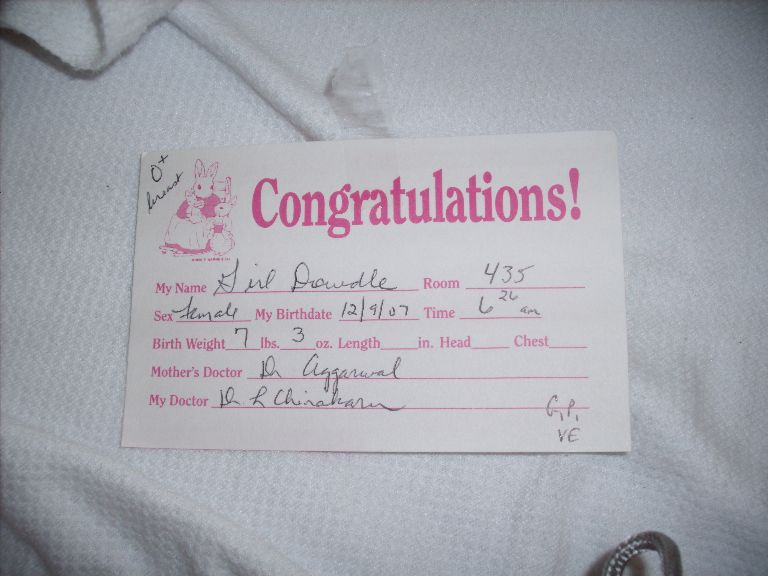 O+
breast
Congratulations!
My Name Girl Dowdle Room 435
Sex female My Birthdate 12/9/07 Time 6 26 am
Birth Weight 7 lbs. 3 oz. Length in. Head Chest
Mother's Doctor Dr Aggarwal
My Doctor Dr. L
G1P1
VE